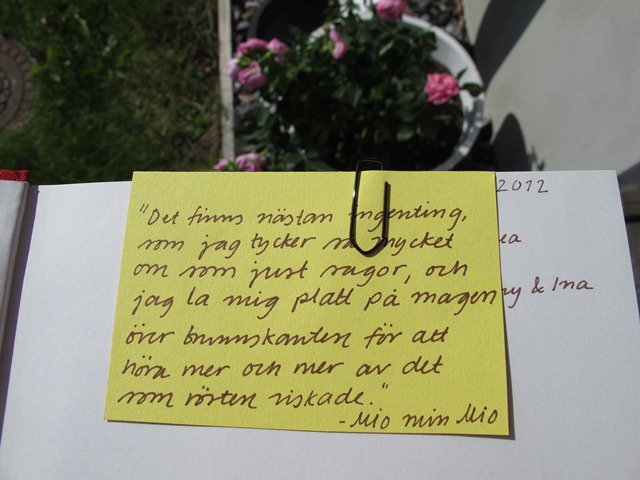 2012
"Det finns nästan ingenting,
som jag tycker så mycket
om som just sagor, och
jag la mig platt på magen
över brunnskanten för att
höra mer och mer av det
som rösten viskade."
- Mio min Mio
& Ina